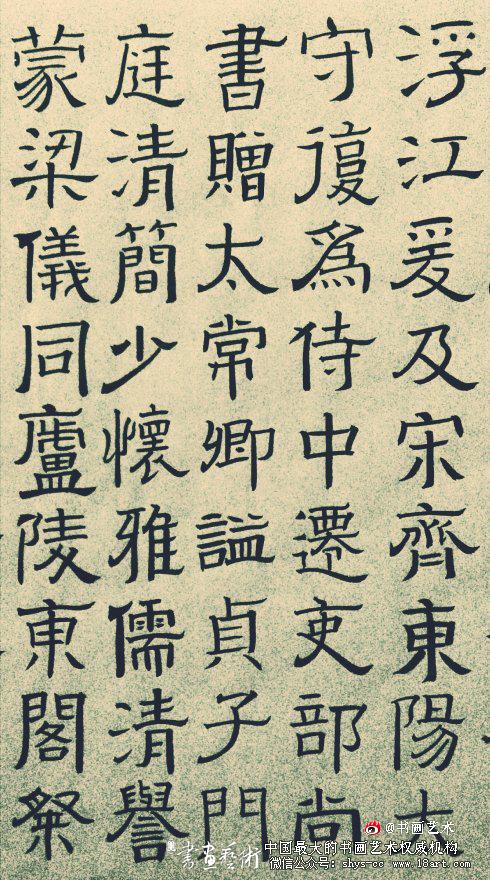 浮江爰及宋齊東陽太
守復爲侍中遷吏部尚
書贈太常卿謚貞子門
庭清簡少懷雅儒清譽
蒙梁儀同廬陵東閣祭
@书画艺术
書畫藝術
中国最大的书画艺术权威机构
微信公众号：shys-cc www.18art.com